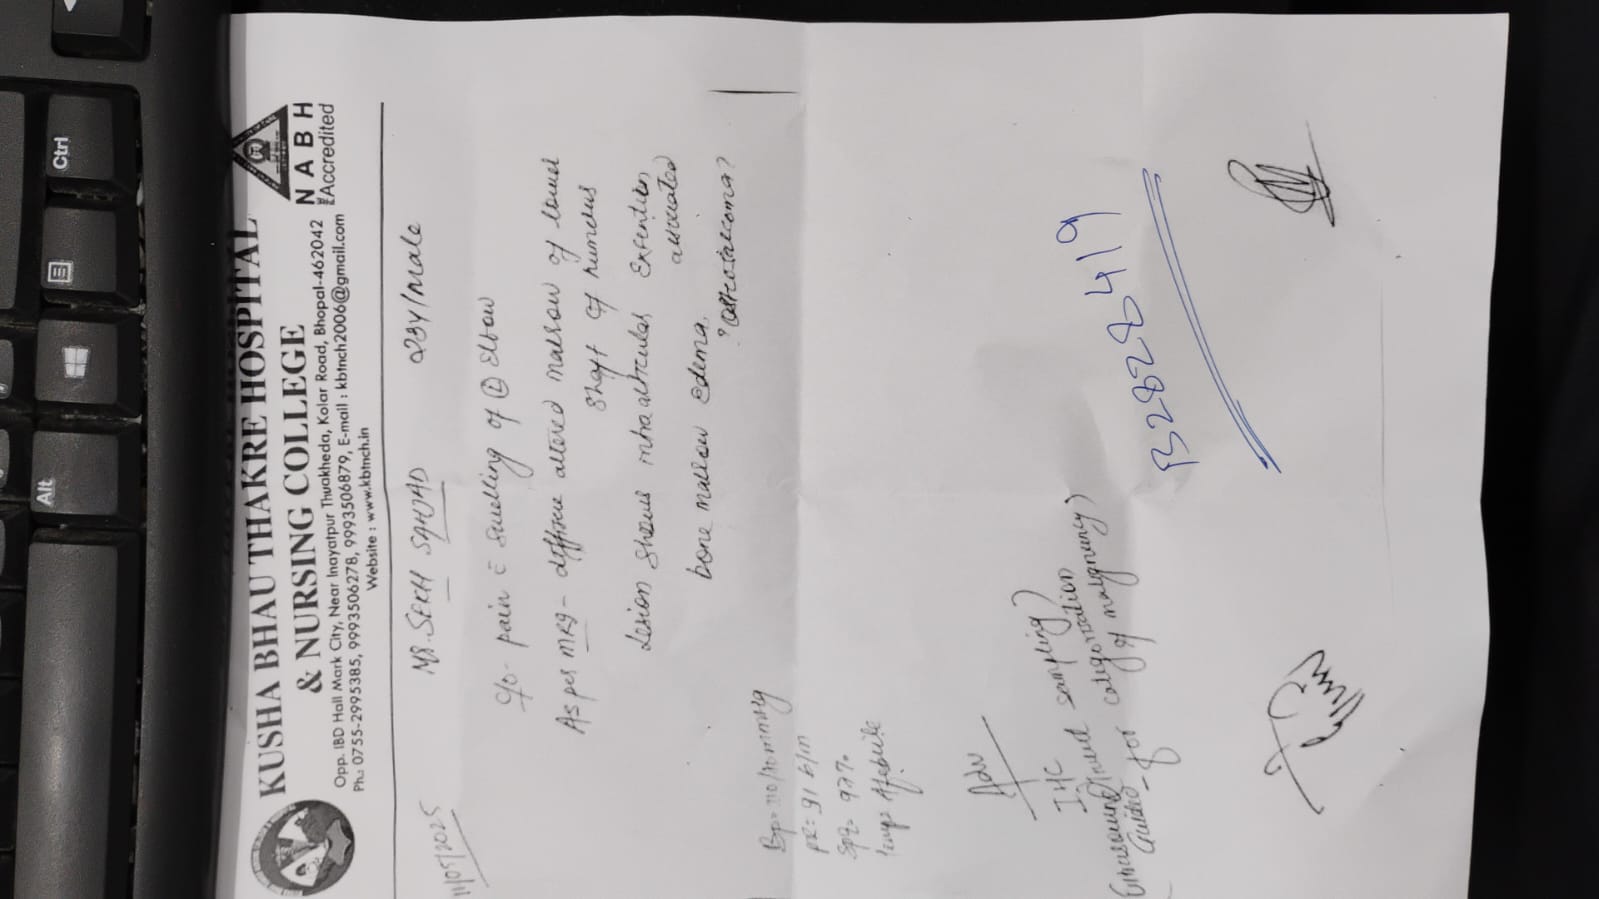 KUSHA BHAU THAKRE HOSPITAL
& NURSING COLLEGE
NABH
Accredited
Opp. IBD Hall Mark City, Near Inayatpur Thuakheda, Kolar Road, Bhopal-462042
Ph.: 0755-2995385, 9993506278, 9993506879, E-mail : kbtnch2006@gmail.com
Website : www.kbtnch.in
11/05/2025
Mr. SEKH SAHJAD 23Y/Male
C/o - pain c̄ swelling of Ⓛ Elbow
As per MRI - diffuse altered marrow of lower
shaft of humerus
Lesion shows intraarticular extention
associated
bone marrow edema.
? Osteosarcoma?
Bp = 110/70 mmHg
PR = 91 b/m
SpO2 = 97%
Temp = Afebrile
Adv
IHC
(Ultrasound Trued sampling)
Guided - for categorization
of malignancy)
B2828419
Ctrl
Alt